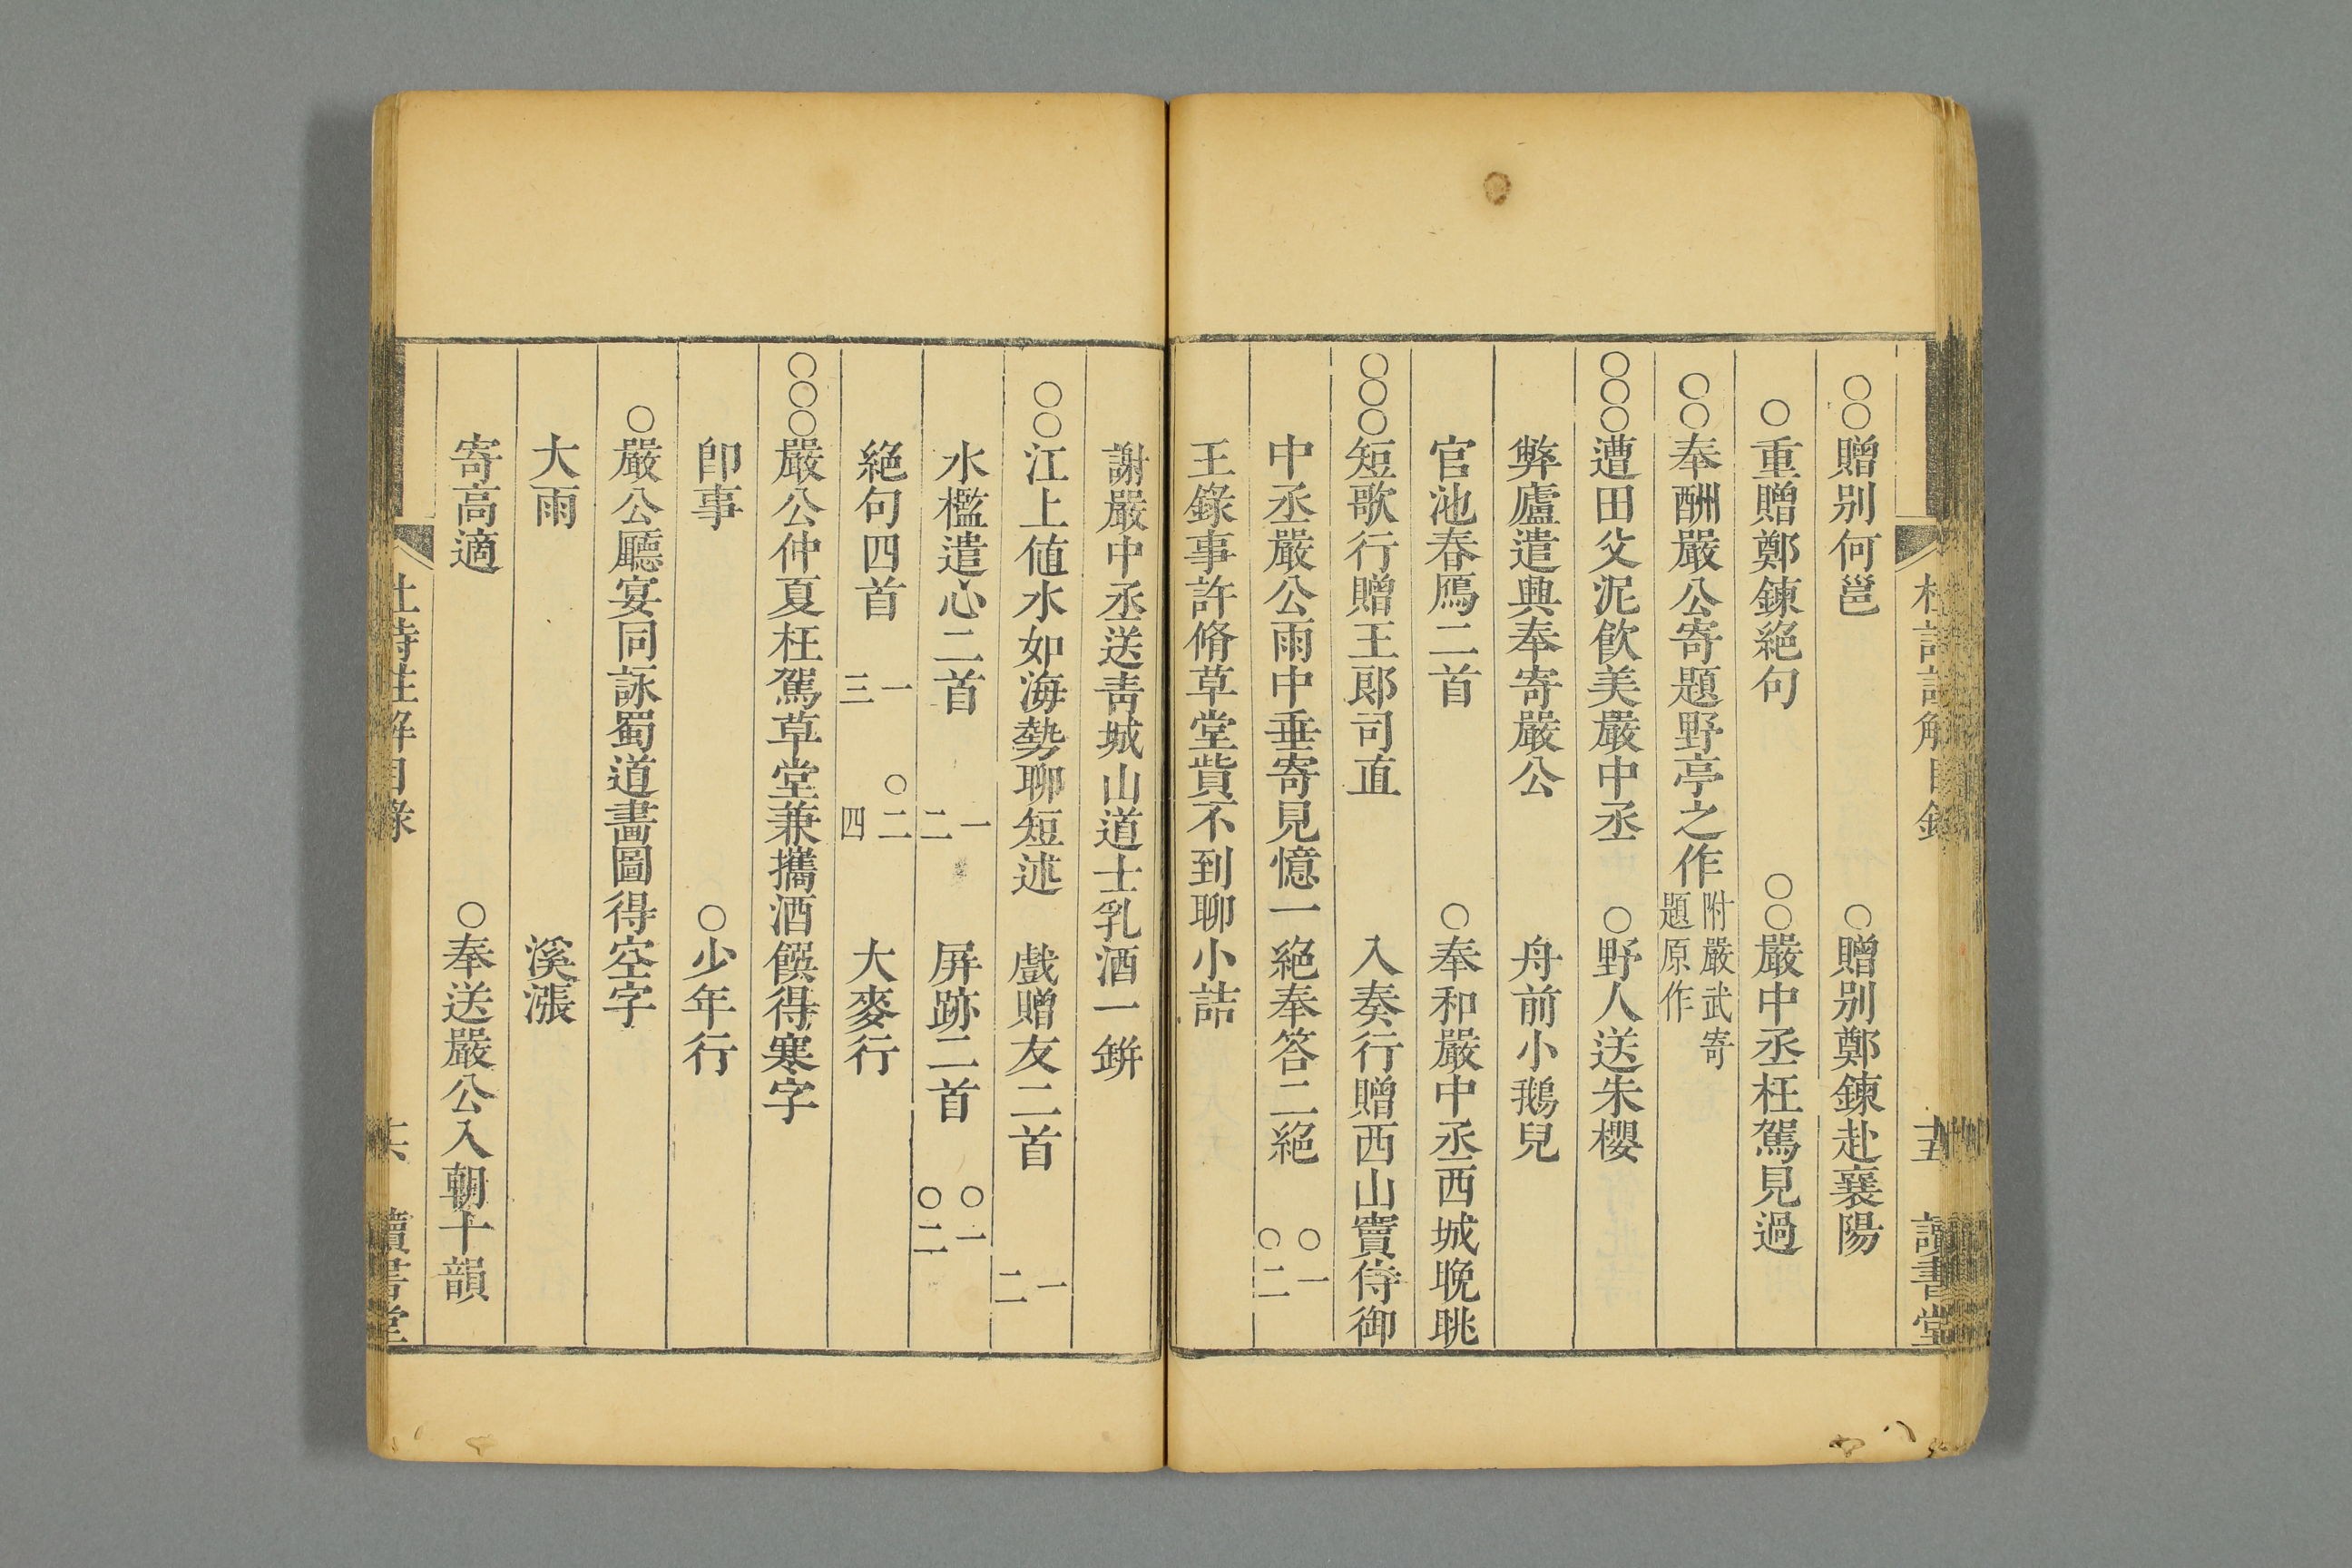 ○○贈別何邕 ○贈別鄭鍊赴襄陽
○重贈鄭鍊絕句 ○○嚴中丞枉駕見過
○○奉酬嚴公寄題野亭之作 附嚴武寄題原作
○○○遭田父泥飲美嚴中丞 ○野人送朱櫻
弊廬遣興奉寄嚴公 舟前小鵝兒
官池春鴈二首 ○奉和嚴中丞西城晚眺
○○○短歌行贈王郎司直 入奏行贈西山竇侍御
中丞嚴公雨中垂寄見憶一絕奉答二絕 ○一 ○二
王錄事許脩草堂貲不到聊小詰
謝嚴中丞送靑城山道士乳酒一缾
○○江上値水如海勢聊短述 戲贈友二首 一 二
水檻遣心二首 一 二 屏跡二首 ○一 ○二
絕句四首 一 ○二 三 四 大麥行
○○○嚴公仲夏枉駕草堂兼攜酒饌得寒字
卽事 ○少年行
○嚴公廳宴同詠蜀道畫圖得空字
大雨 溪漲
寄高適 ○奉送嚴公入朝十韻
杜詩註解目錄 十六 讀書堂